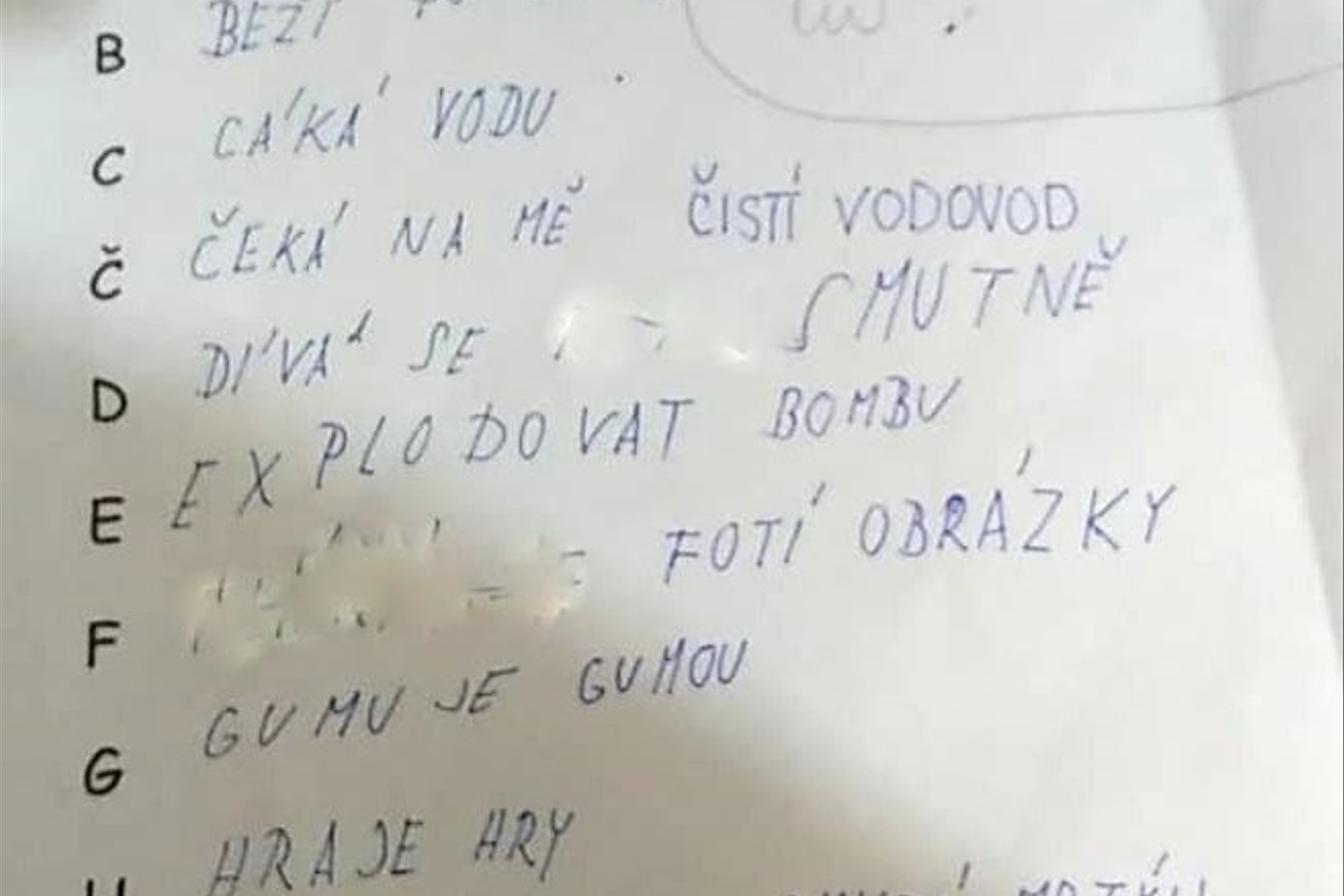 B BEZI
C CÁKÁ VODU
Č ČEKÁ NA MĚ ČISTÍ VODOVOD
D DÍVÁ SE SMUTNĚ
E EXPLODOVAT BOMBU
F FOTÍ OBRÁZKY
G GUMUJE GUMOU
HRAJE HRY